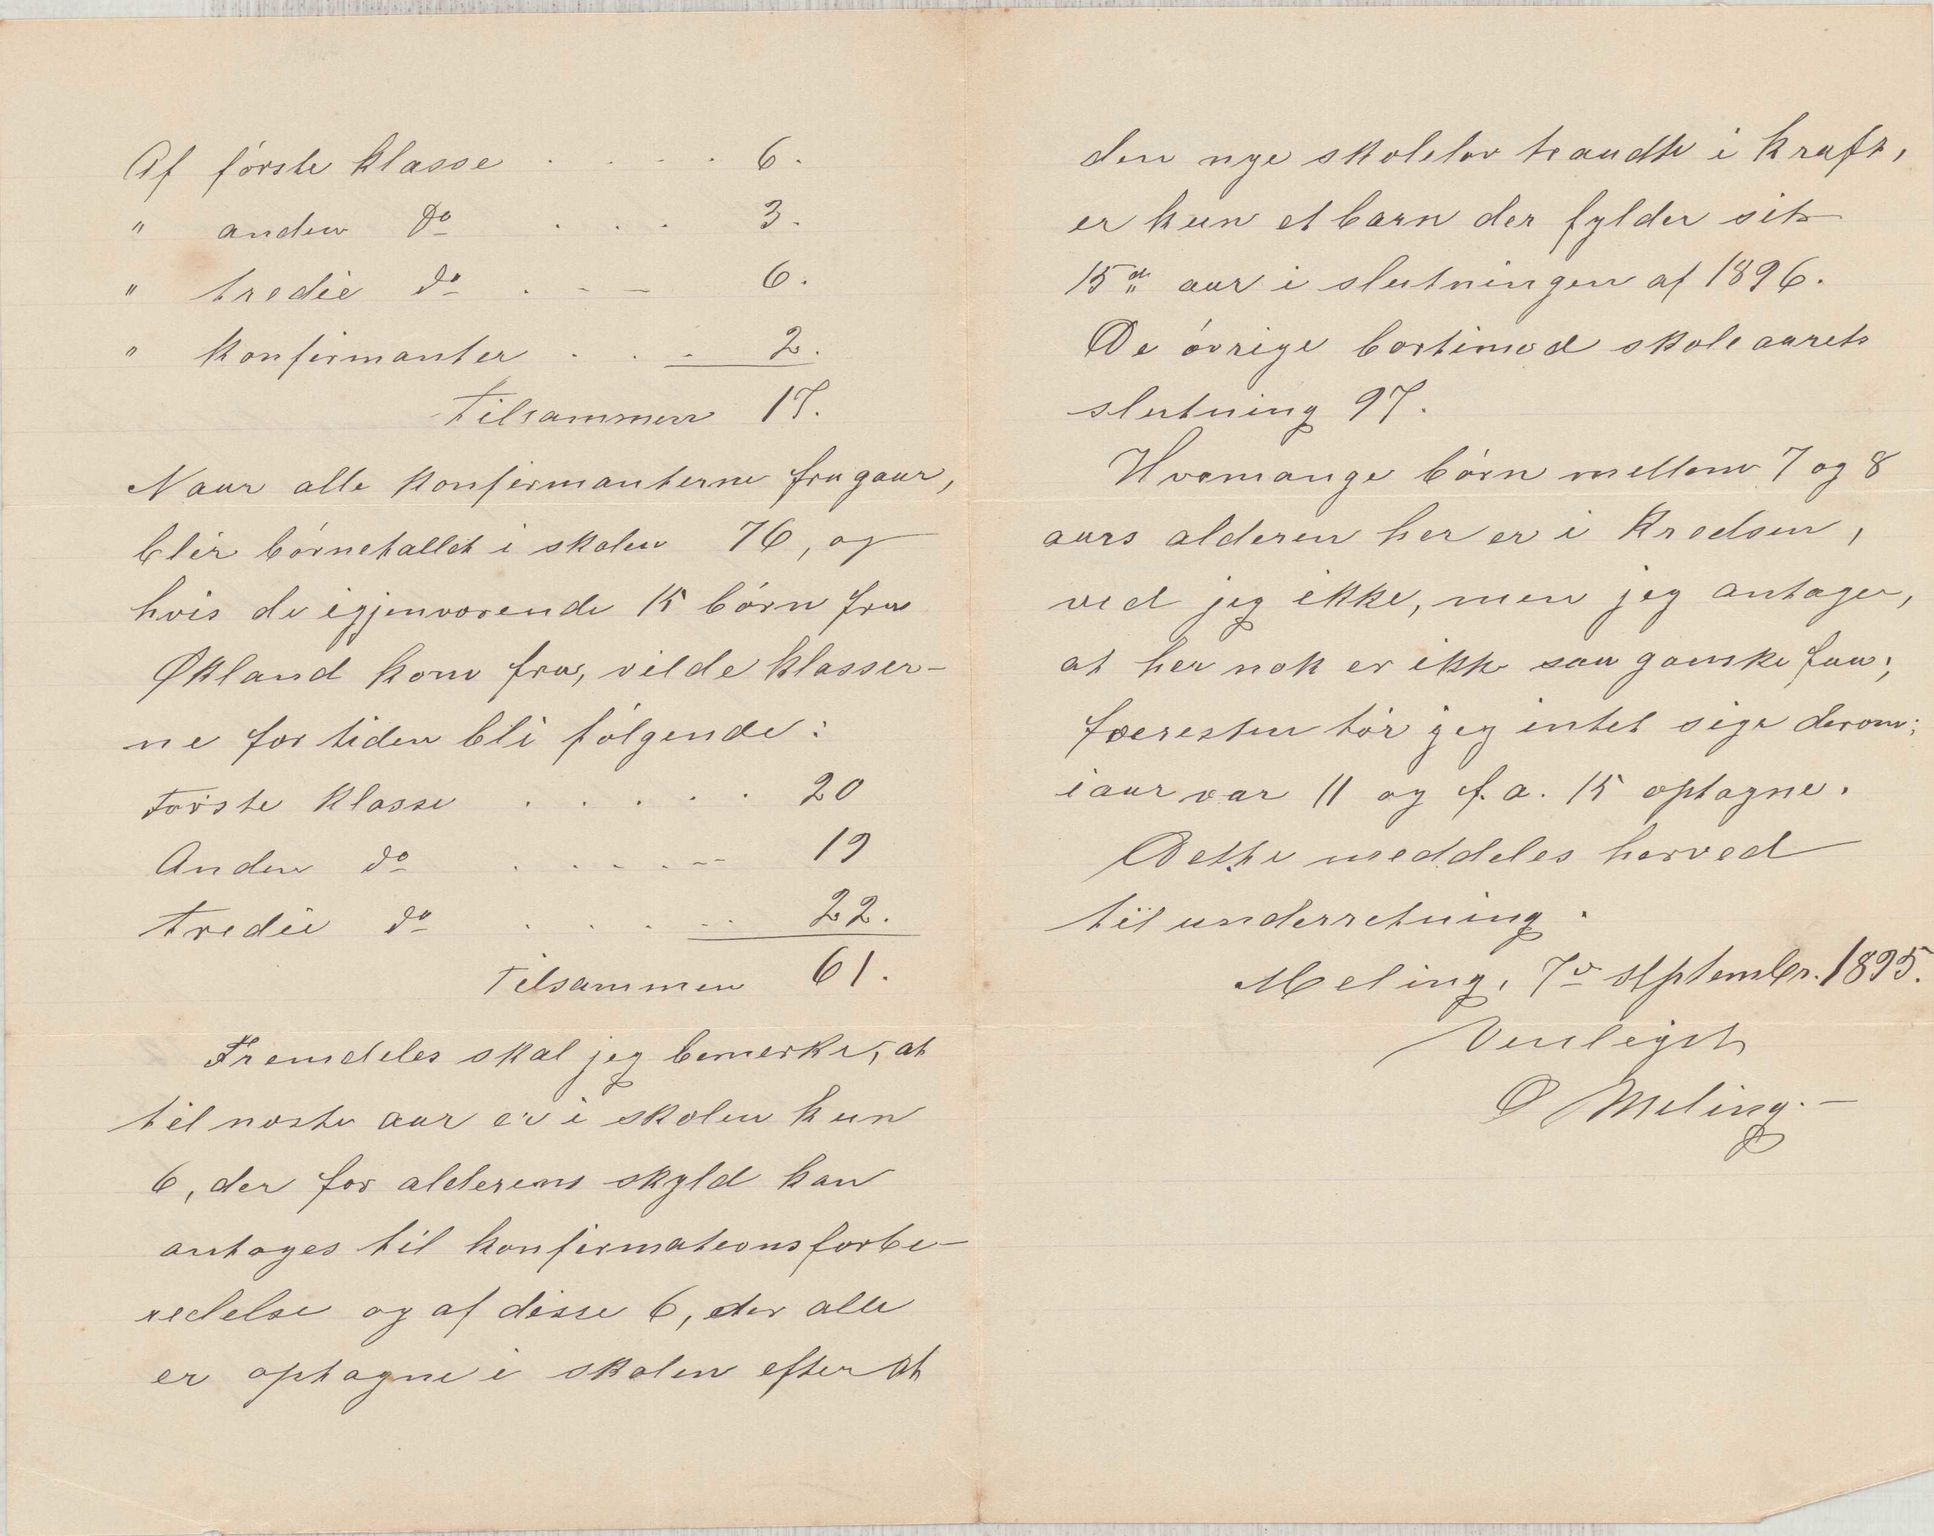 Af første klasse . . . . 6.
" anden do . . . 3.
" tredie do . - - 6.
" konfirmanter . . . 2.
Tilsammen 17.
Naar alle konfirmanterne fragaar,
blir børnetallet i skolen 76, og
hvis de igjenværende 15 børn fra
Økland kom fra, vilde klasser-
ne for tiden bli følgende:
Første klasse . . . . . 20
Anden do . . . . - 19
Tredie do . . . . . 22.
Tilsammen 61.
Fremdeles skal jeg bemerke, at
til næste aar er i skolen kun
6, der for alderens skyld kan
antages til konfirmationsforbe-
redelse og af disse 6, der alle
er optagne i skolen efter at
den nye skolelov traadte i kraft,
er kun et barn der fylder sit
15de aar i slutningen af 1896.
De øvrige bortimod skoleaarets
slutning 97.
Hvormange børn mellem 7 og 8
aars alderen her er i kredsen,
ved jeg ikke, men jeg antager,
at her nok er ikke saa ganske faa;
foresten tør jeg intet sige derom;
iaar var 11 og f. a. 15 optagne.
Dette meddeles herved
til underretning.
Meling, 7de september. 1895.
Venligst
O Meling.-